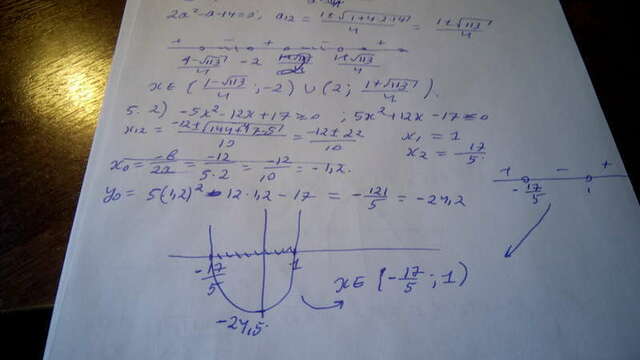 2a² - a - 14 = 0; a₁₂ = (1±√(1+4·2·14))/4 = (1±√113)/4
+ - + - +
(1-√113)/4 -2 (1+√113)/4
x∈((1-√113)/4; -2) ∪ (2; (1+√113)/4).
5. 2) -5x² - 12x + 17 ≥ 0; 5x² + 12x - 17 ≤ 0
x₁₂ = (-12±√(144+4·17·5))/10 = (-12±22)/10 x₁ = 1
x₂ = -17/5.
x₀ = -b/2a = -12/(5·2) = -12/10 = -1,2.
+ - +
-17/5 1
y₀ = 5(1,2)² - 12·1,2 - 17 = -121/5 = -24,2
-17/5 1
x∈(-17/5; 1)
-24,5